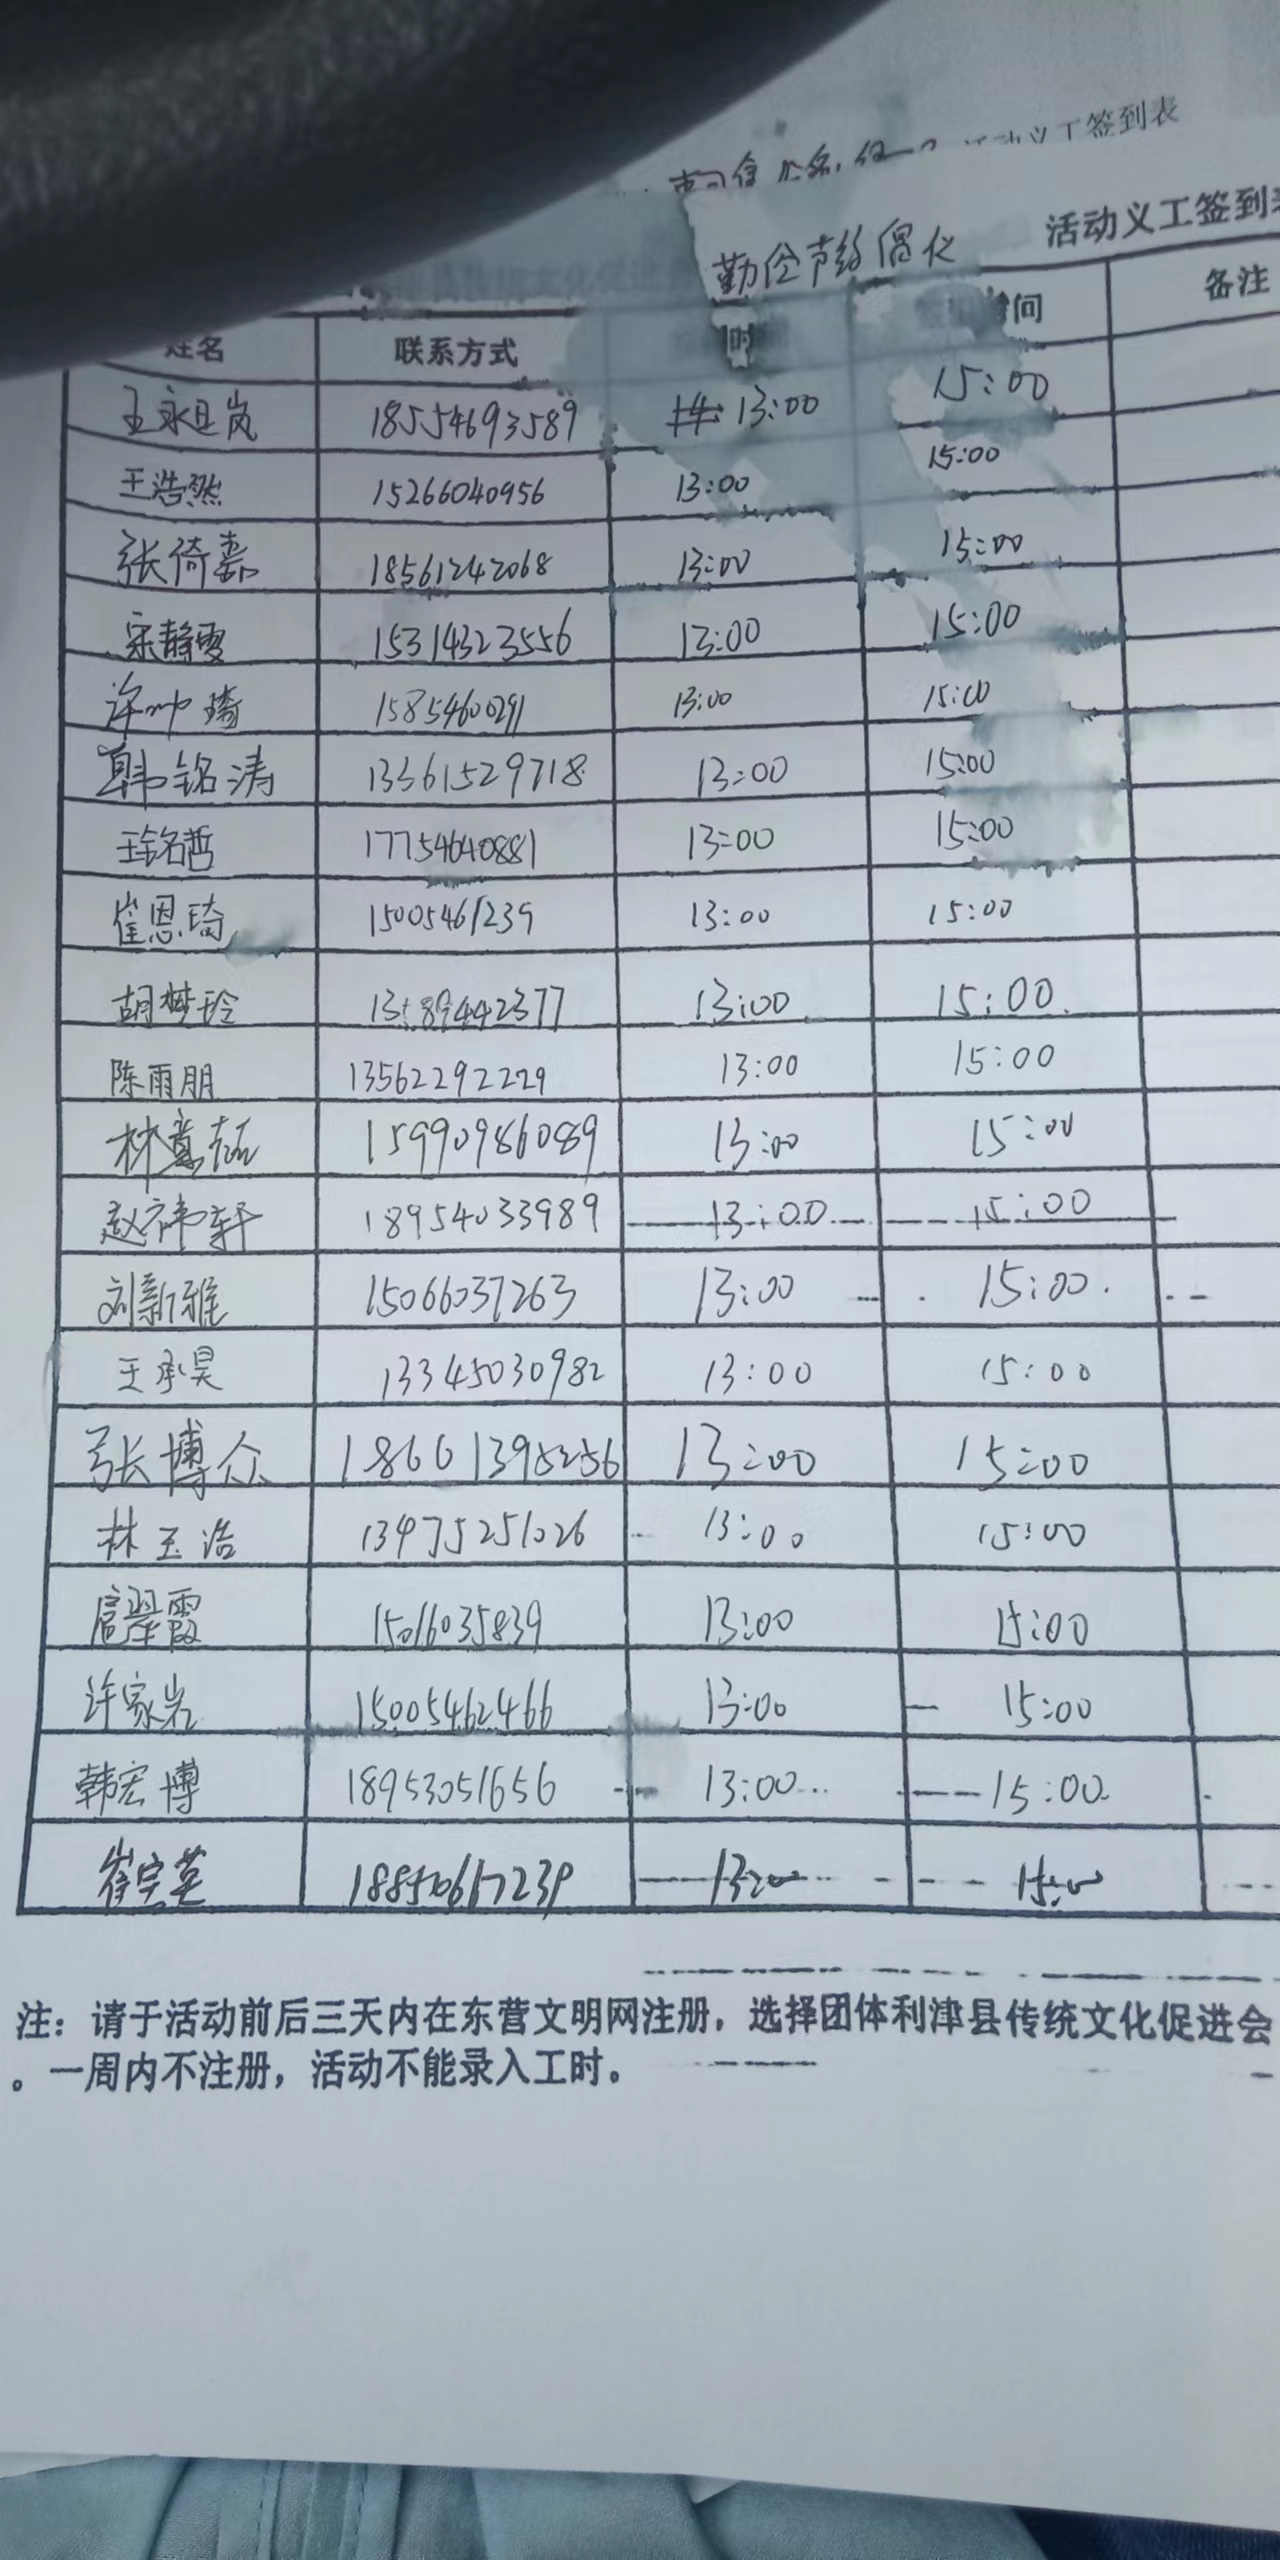 活动义工签到表
勤俭节约 活动义工签到
姓名 联系方式 时间 时间 备注
18554693589 13:00 15:00
王浩然 15266040956 13:00 15:00
张倚嘉 18561242068 13:00 15:00
宋静雯 15314323556 13:00 15:00
15854600291 13:00 15:00
韩铭涛 13361529718 13:00 15:00
王铭哲 17754640881 13:00 15:00
崔恩琦 15005461239 13:00 15:00
胡梦玲 13589442377 13:00 15:00
陈雨朋 13562292229 13:00 15:00
林 15990986089 13:00 15:00
赵祎轩 18954033989 13:00 15:00
刘新雅 15066037263 13:00 15:00
王承昊 13345030982 13:00 15:00
张博众 13:00 15:00
林玉浩 13475251026 13:00 15:00
扈翠霞 13:00 15:00
许家岩 15005462466 13:00 15:00
韩宏博 18953051656 13:00 15:00
崔 13:00 15:00
注：请于活动前后三天内在东营文明网注册，选择团体利津县传统文化促进会
。一周内不注册，活动不能录入工时。